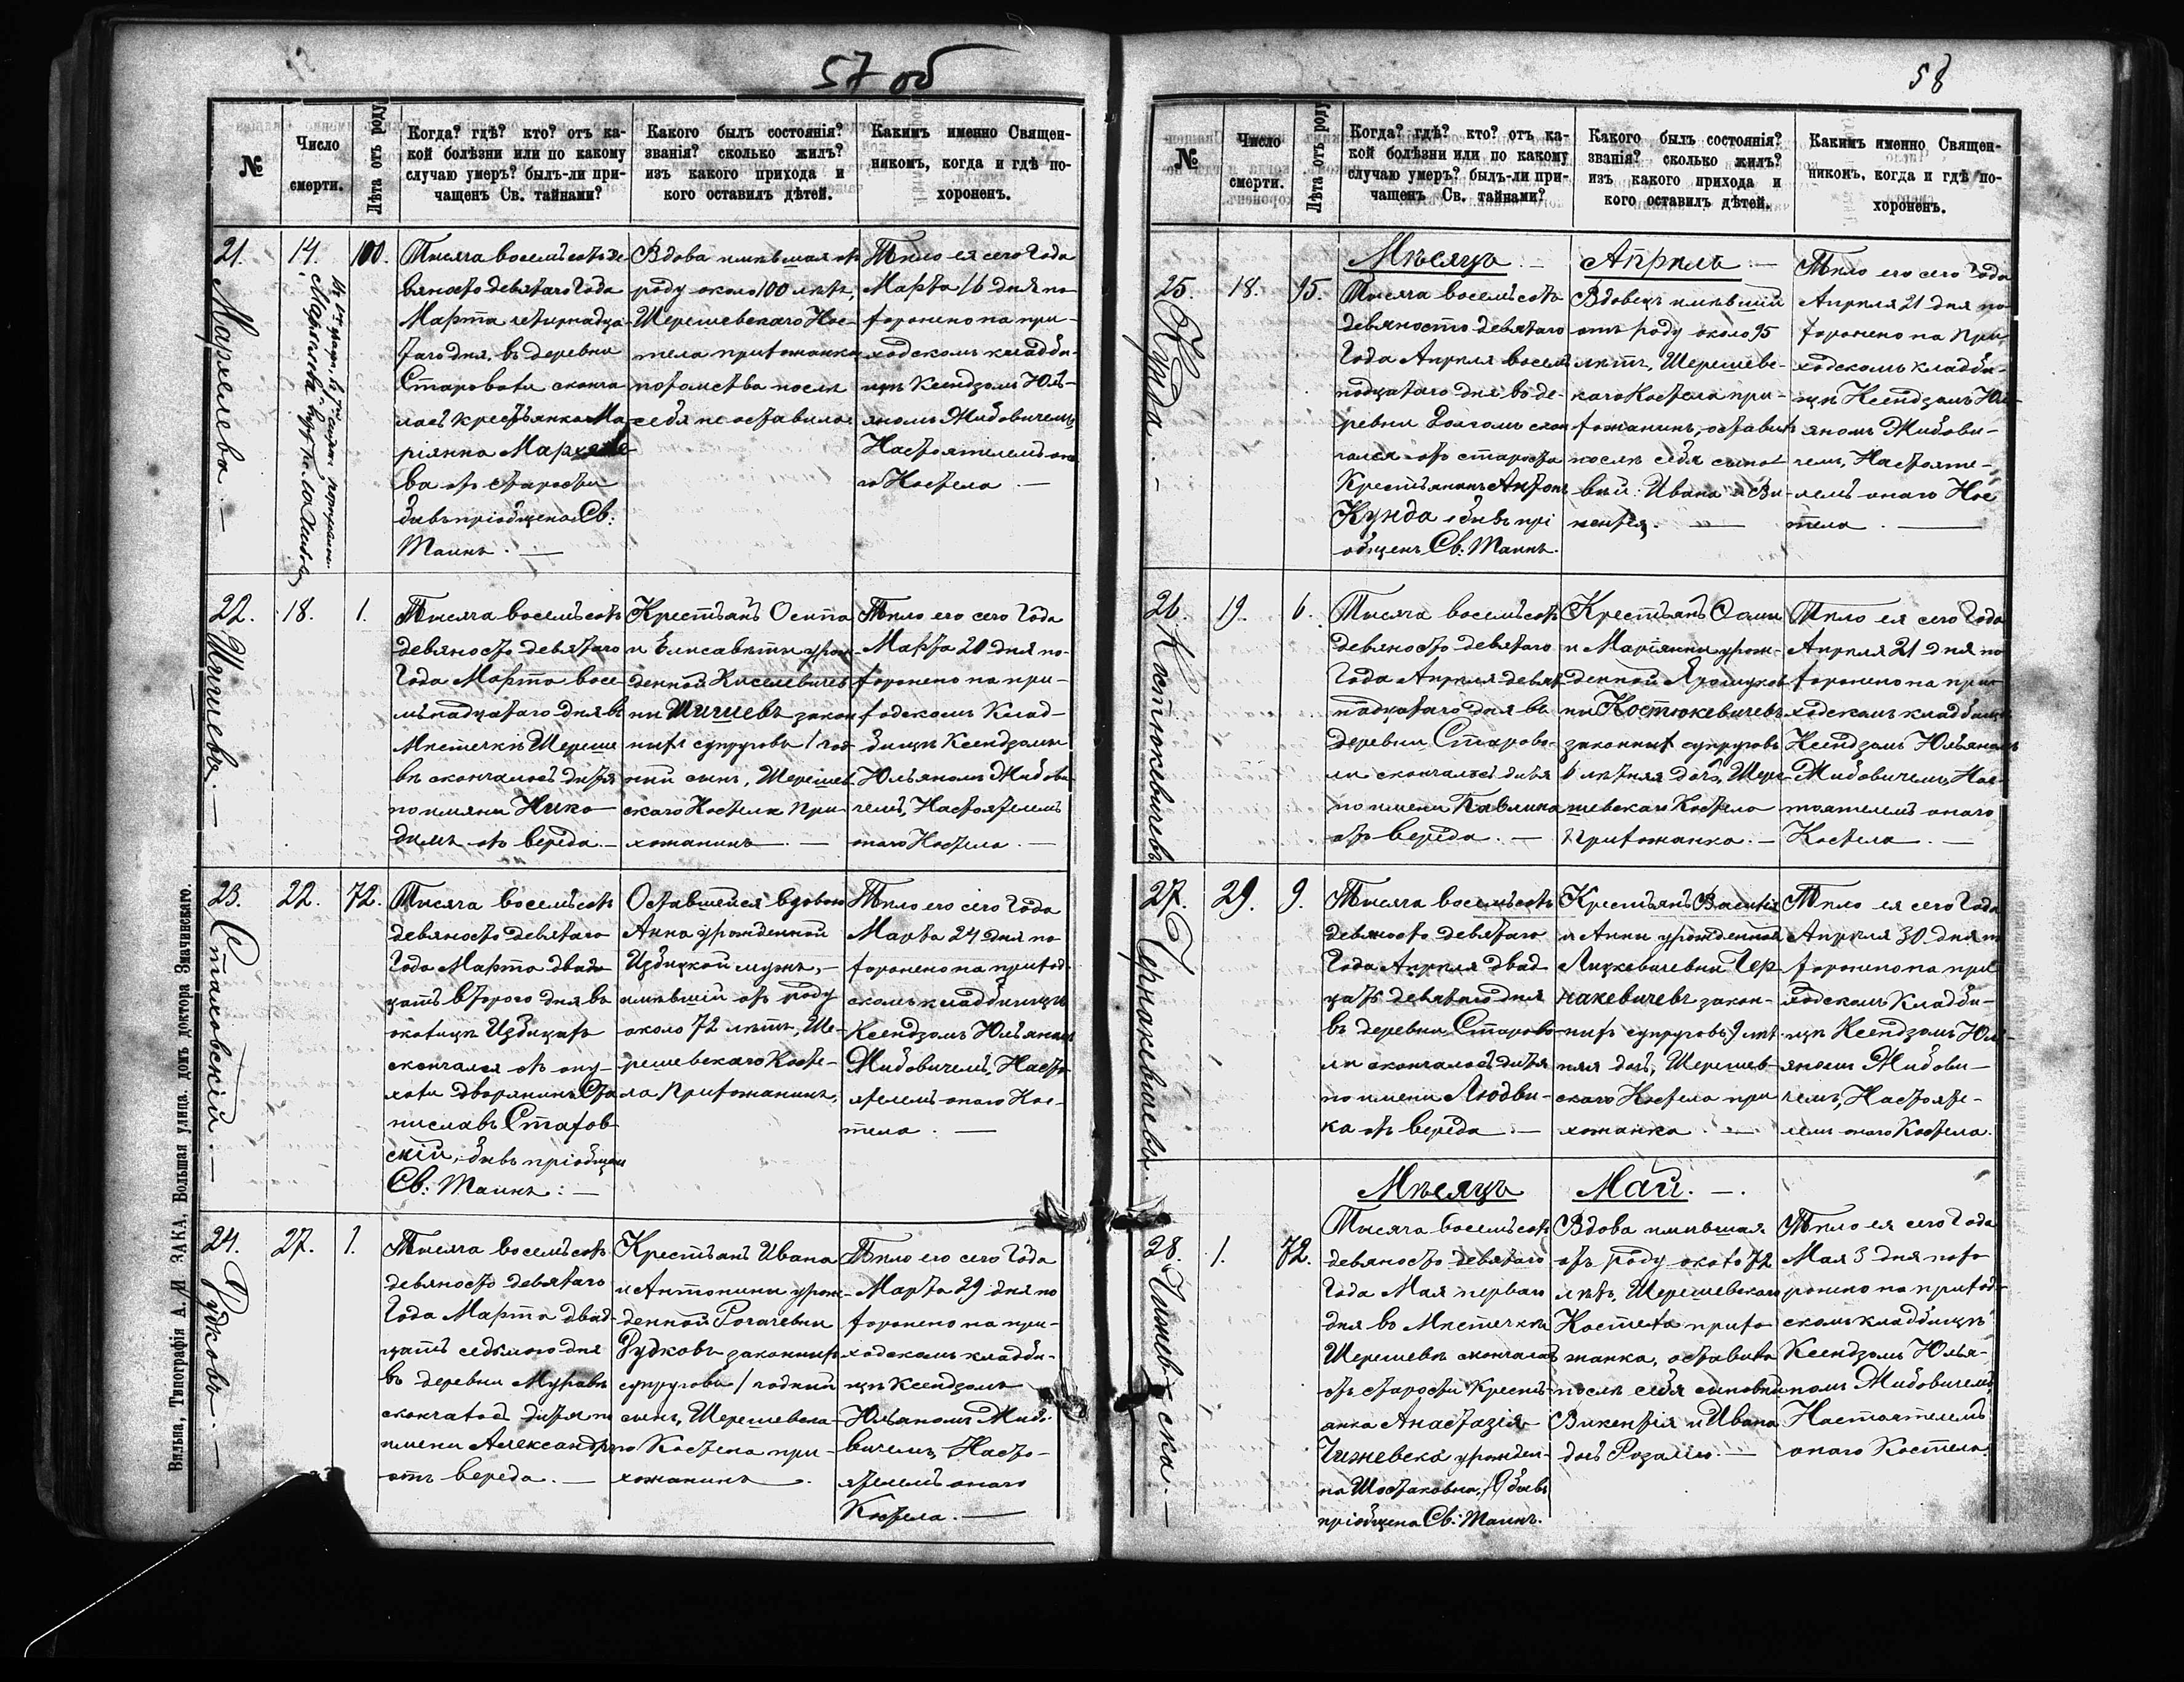 57 об
№
Число
смерти.
Лѣта отъ роду
Когда? гдѣ? кто? отъ ка-
кой болѣзни или по какому
случаю умеръ? былъ-ли при-
чащенъ Св. тайнами?
Какого былъ состоянія?
званія? сколько жилъ?
изъ какого прихода и
кого оставилъ дѣтей.
Какимъ именно Священ-
никомъ, когда и гдѣ по-
хороненъ.
21.
Мархелева.—
14.
100.
Тысяча восемьсотъ де
вяносто девятаго Года
Марта четырнадца-
таго дня, въ деревни
Староволи сконча
лась крестьянка Ма
ріянна Мархеле
ва отъ старости
бывъ пріобщена Св:
Таинъ.—
Вдова имѣвшая отъ
роду около 100 лѣтъ,
Шерешевскаго Кос-
тела прихожанка
потомства послѣ
себя не оставила
Тѣло ея сего Года
Марта 16 дня по-
хоронено на при-
ходскомъ кладби-
щѣ Ксендзомъ Юль-
яномъ Мибовичемъ,
Настоятелемъ она
го Костела.—
22.
Шишевъ.—
18.
1.
Тысяча восемьсотъ
девяносто девятаго
Года Марта восе
мьнадцатаго дня въ
Мѣстечкѣ Шереше
вѣ скончалось дитя
по имяни Нико-
димъ отъ вереда.—
Крестьянъ Осипа
и Елисаветы урож-
денной Киселевичев
ны Шишевъ закон
ныхъ супруговъ 1 год
ній сынъ, Шерешев
скаго Костела При-
хожанинъ.—
Тѣло его сего Года
Марта 20 дня по-
хоронено на при-
ходскомъ Клад-
бищѣ Ксендзомъ
Юльяномъ Мибови
чемъ, Настоятелемъ
онаго Костела.—
23.
Стаховскій.—
22.
72.
Тысяча восемьсотъ
девяносто девятаго
Года Марта двад
цать втораго дня въ
околицѣ Избицахъ
скончался отъ опу-
холи дворянинъ Ста
ниславъ Стахов
скій, бывъ пріобщенъ
Св: Таинъ:—
Оставшейся вдовою
Анна урожденной
Избицкой мужъ,—
имѣвшій отъ роду
около 72 лѣтъ, Ше-
решевскаго Косте-
ла Прихожанинъ,
Тѣло его сего Года
Марта 24 дня по
хоронено на приход
скомъ кладбищѣ
Ксендзомъ Юльяномъ
Мибовичемъ, Насто
ятелемъ онаго Кос-
тела.—
24.
Рудковъ.—
27.
1.
Тысяча восемьсотъ
девяносто девятаго
Года Марта двад-
цать седьмого дня
въ деревни Муравѣ
скончалось дитя по
имени Александръ
отъ вереда.—
Крестьянъ Ивана
и Антонины урож-
денной Рогачевны
Рудковъ законныхъ
супруговъ 1 годній
сынъ, Шерешевска-
го Костела при-
хожанинъ.
Тѣло его сего Года
Марта 29 дня по
хоронено на при-
ходскомъ кладби-
щѣ Ксендзомъ
Юльяномъ Мибо-
вичемъ, Насто-
ятелемъ онаго
Костела.—
Вильна, Типографія А. И ЗАКА, Большая улица. домъ доктора Значинскаго.
58
№
Число
смерти.
Лѣта отъ роду
Когда? гдѣ? кто? отъ ка-
кой болѣзни или по какому
случаю умеръ? былъ-ли при-
чащенъ Св. тайнами?
Какого былъ состоянія?
званія? сколько жилъ?
изъ какого прихода и
кого оставилъ дѣтей.
Какимъ именно Священ-
никомъ, когда и гдѣ по-
хороненъ.
Мѣсяцъ.— Апрѣль.—
25.
Кунда.—
18.
95.
Тысяча восемьсотъ
девяносто девятаго
Года Апрѣля восем
надцатаго дня въ де-
ревни Долгомъ скон
чался отъ старости
Крестьянинъ Антонъ
Кунда, бывъ прі
общенъ Св: Таинъ.
Вдовецъ имѣвшій
отъ роду около 95
лѣтъ, Шерешевс-
каго Костела при-
хожанинъ, оставилъ
послѣ себя сыно-
вьй: Ивана и Ви
кентія.—
Тѣло его сего Года
Апрѣля 21 дня по
хоронено на При
ходскомъ кладби-
щѣ Ксендзомъ Юль-
яномъ Мибови-
чемъ, Настояте-
лемъ онаго Кос
тела.—
26.
Костюкевичевъ
19.
6.
Тысяча восемьсотъ
девяносто девятаго
Года Апрѣля девят
надцатаго дня въ
деревни Старово-
ли скончалось дитя
по имени Павлина
отъ вереда.—
Крестьянъ Сами
и Маріянны урож-
денной Ярошуков
ны Костюкевичевъ
законныхъ супруговъ
6 лѣтняя дочь, Шере
шевскаго Костела
Прихожанка.—
Тѣло ея сего Года
Апрѣля 21 дня по
хоронено на при
ходскомъ кладбищѣ
Ксендзомъ Юльяномъ
Мибовичемъ, Нас-
тоятелемъ онаго
Костела.—
27.
Чернакевичевъ.
29.
9.
Тысяча восемьсотъ
девяносто девятаго
Года Апрѣля двад
цать девятаго дня
въ деревни Старово
ли скончалось дитя
по имени Людви-
ка отъ вереда.—
Крестьянъ Василія
и Анны урожденной
Лицкевичевны Чер
накевичевъ закон-
ныхъ супруговъ 9 лѣт
няя дочь, Шерешев-
скаго Костела при
хожанка.—
Тѣло ея сего Года
Апрѣля 30 дня по
хоронено на при
ходскомъ Кладби-
щѣ Ксендзомъ Юль-
яномъ Мибови-
чемъ, Настояте-
лемъ онаго Костела.
Мѣсяцъ Май.—.
28.
Чижевска.—
1.
72.
Тысяча восемьсотъ
девяносто девятаго
Года Мая перваго
дня въ Мѣстечкѣ
Шерешевѣ скончалась
отъ старости Кресть-
янка Анастазія
Чижевска урожден-
на Шостаковна, бывъ
пріобщена Св: Таинъ.
Вдова имѣвшая
отъ роду около 72
лѣтъ, Шерешевскаго
Костела прихо
жанка, оставила
послѣ себя сыновьй
Викентія и Ивана
дочь Розалію.—
Тѣло ея сего Года
Мая 3 дня похо
ронено на приход-
скомъ кладбищѣ
Ксендзомъ Юлья-
номъ Мибовичемъ,
Настоятелемъ
онаго Костела.